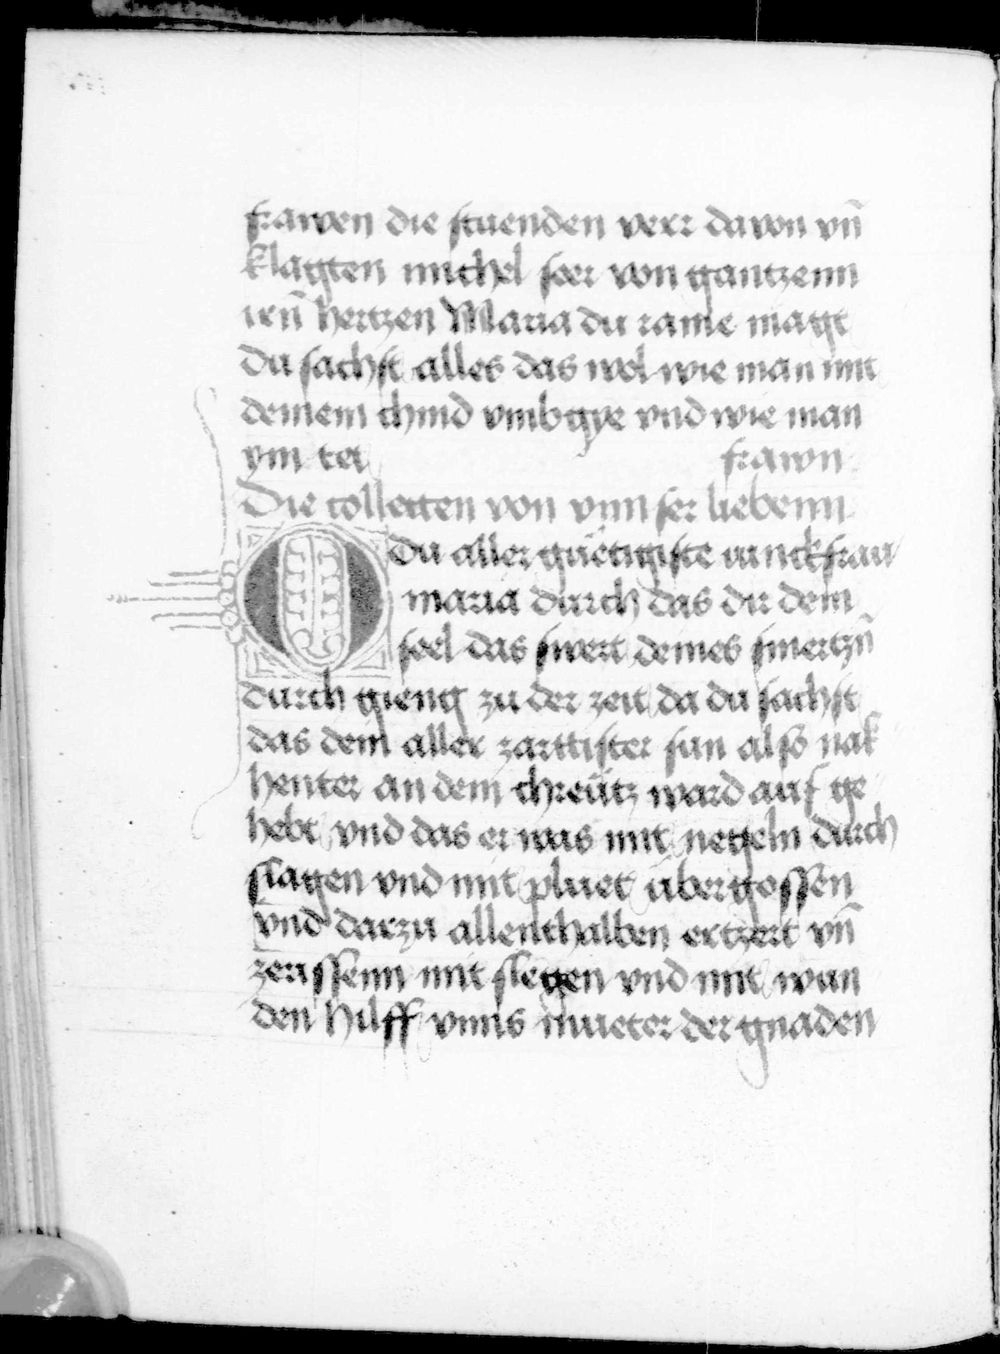 frawen die stuenden verr da von vn̄
klagten michel seer von gantzenn
iren̄ hertzen Maria du raine magt
du sachst alles das wol wie man mit
deinem chind vmbgye vnd wie man
ym tet frawn
Die collecten von vnnser liebenn
O du aller guetigiste iunckfraw
maria durch das dir dein
seel das swert deines smertzn̄
durch gieng zu der zeit da du sachst
das dein aller zarttister sun also nak
henter an dem chreütz ward auf ge
hebt vnd das er was mit negeln durch
slagen vnd mit pluet übergossen
vnd darzu allenthalben ertzert vn̄
zerissenn mit slegen vnd mit wun
den Hilff vnns mueter der gnaden